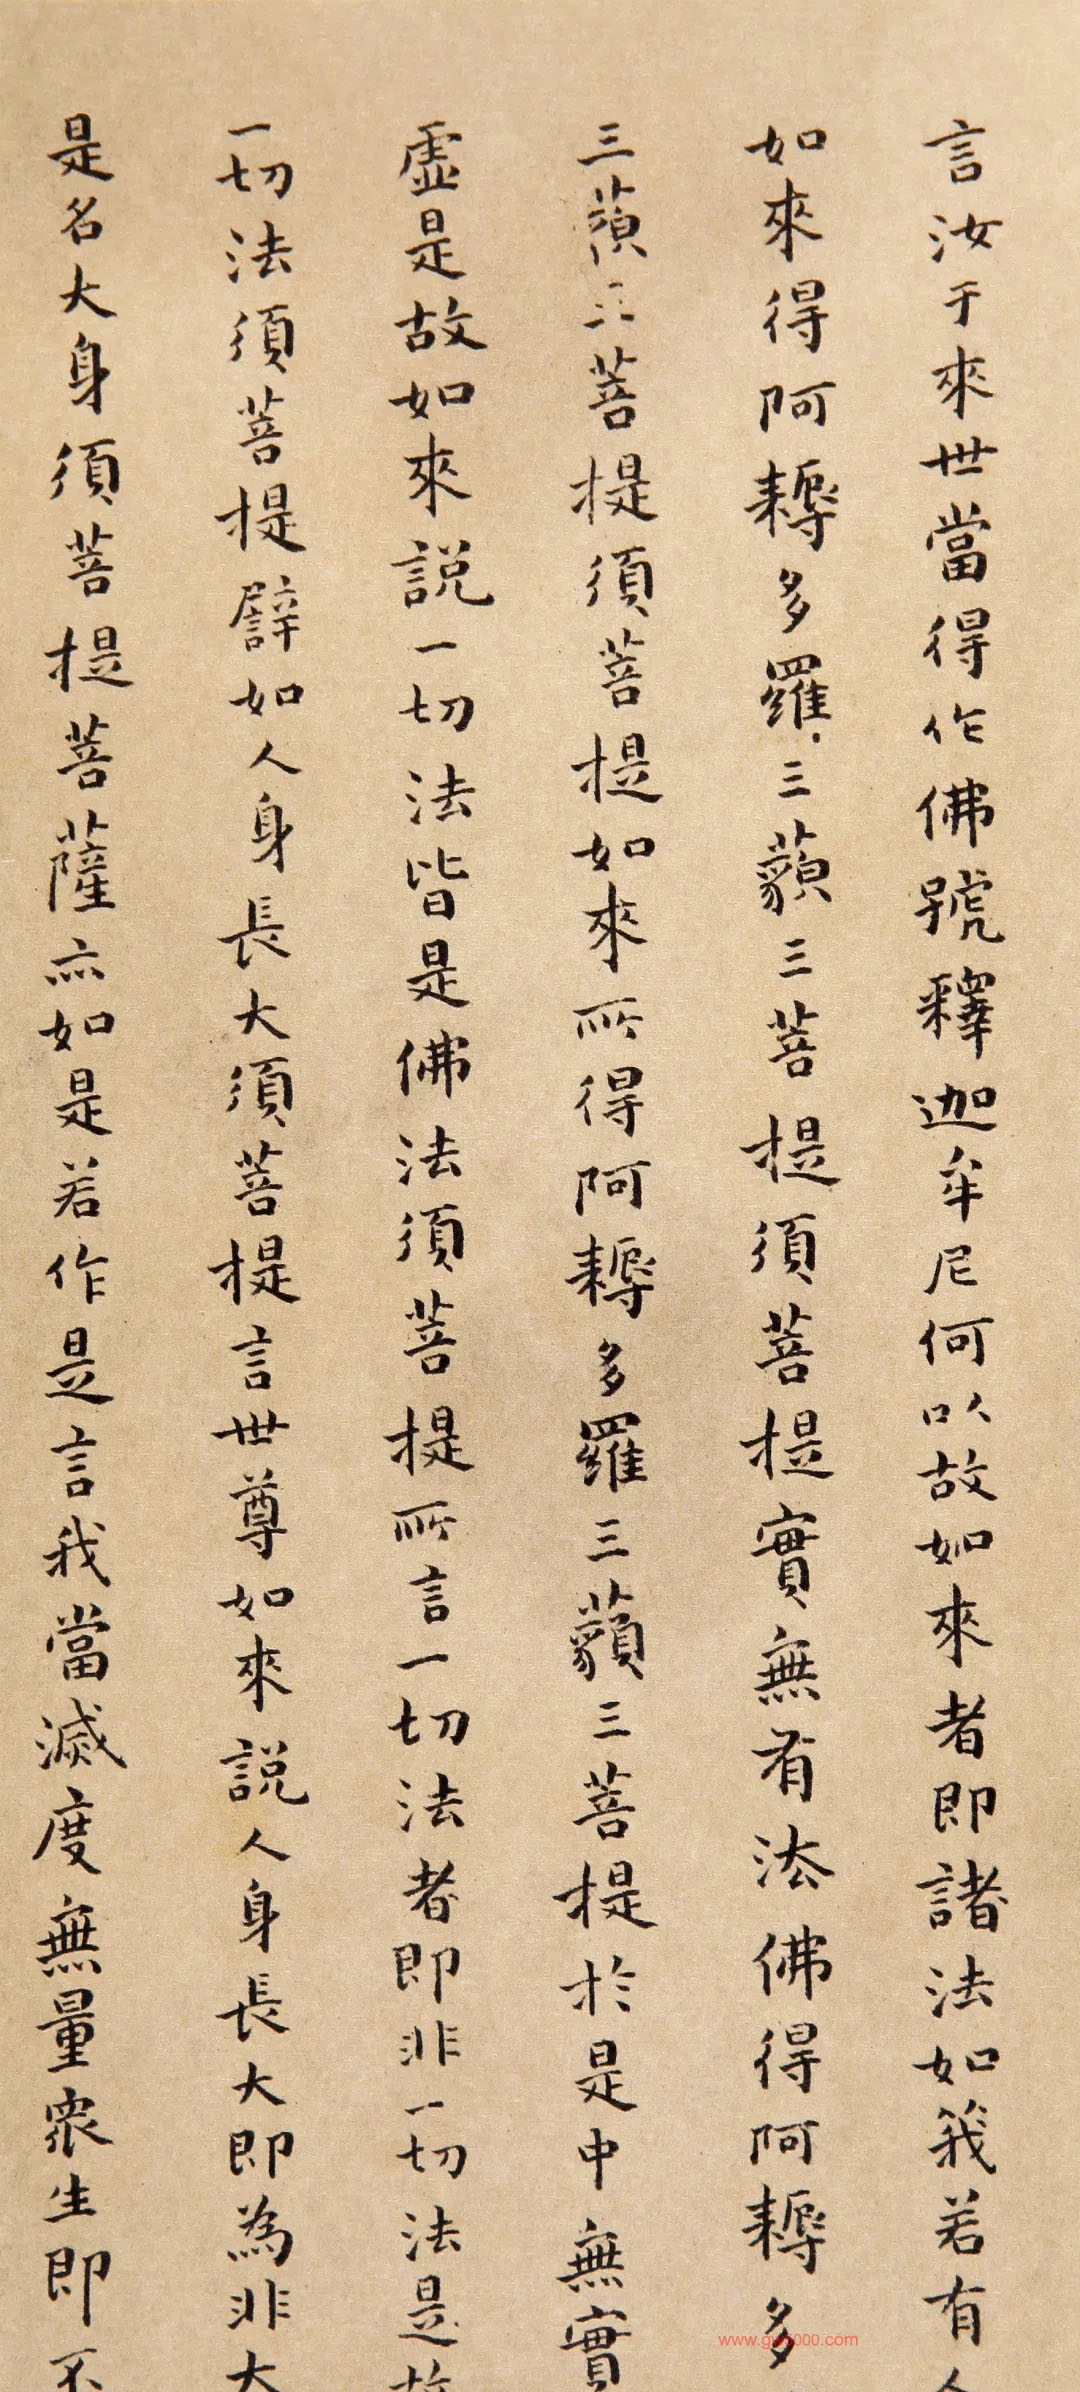 言汝于來世當得作佛號釋迦牟尼何以故如來者即諸法如義若有人
如來得阿耨多羅三藐三菩提須菩提實無有法佛得阿耨多
三藐三菩提須菩提如來所得阿耨多羅三藐三菩提於是中無實
虛是故如來說一切法皆是佛法須菩提所言一切法者即非一切法是故
一切法須菩提譬如人身長大須菩提言世尊如來說人身長大即為非大
是名大身須菩提菩薩亦如是若作是言我當滅度無量眾生即不
www.gw5000.com